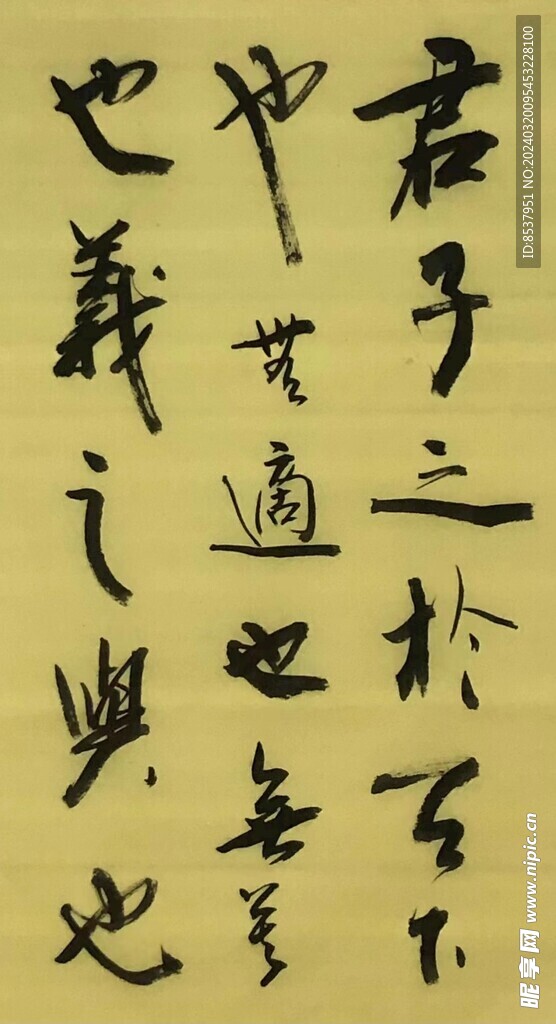 君子之於天下
也無適也無莫
也義之與也
ID:8537951 NO:20240320095453228100
昵享网 www.nipic.cn